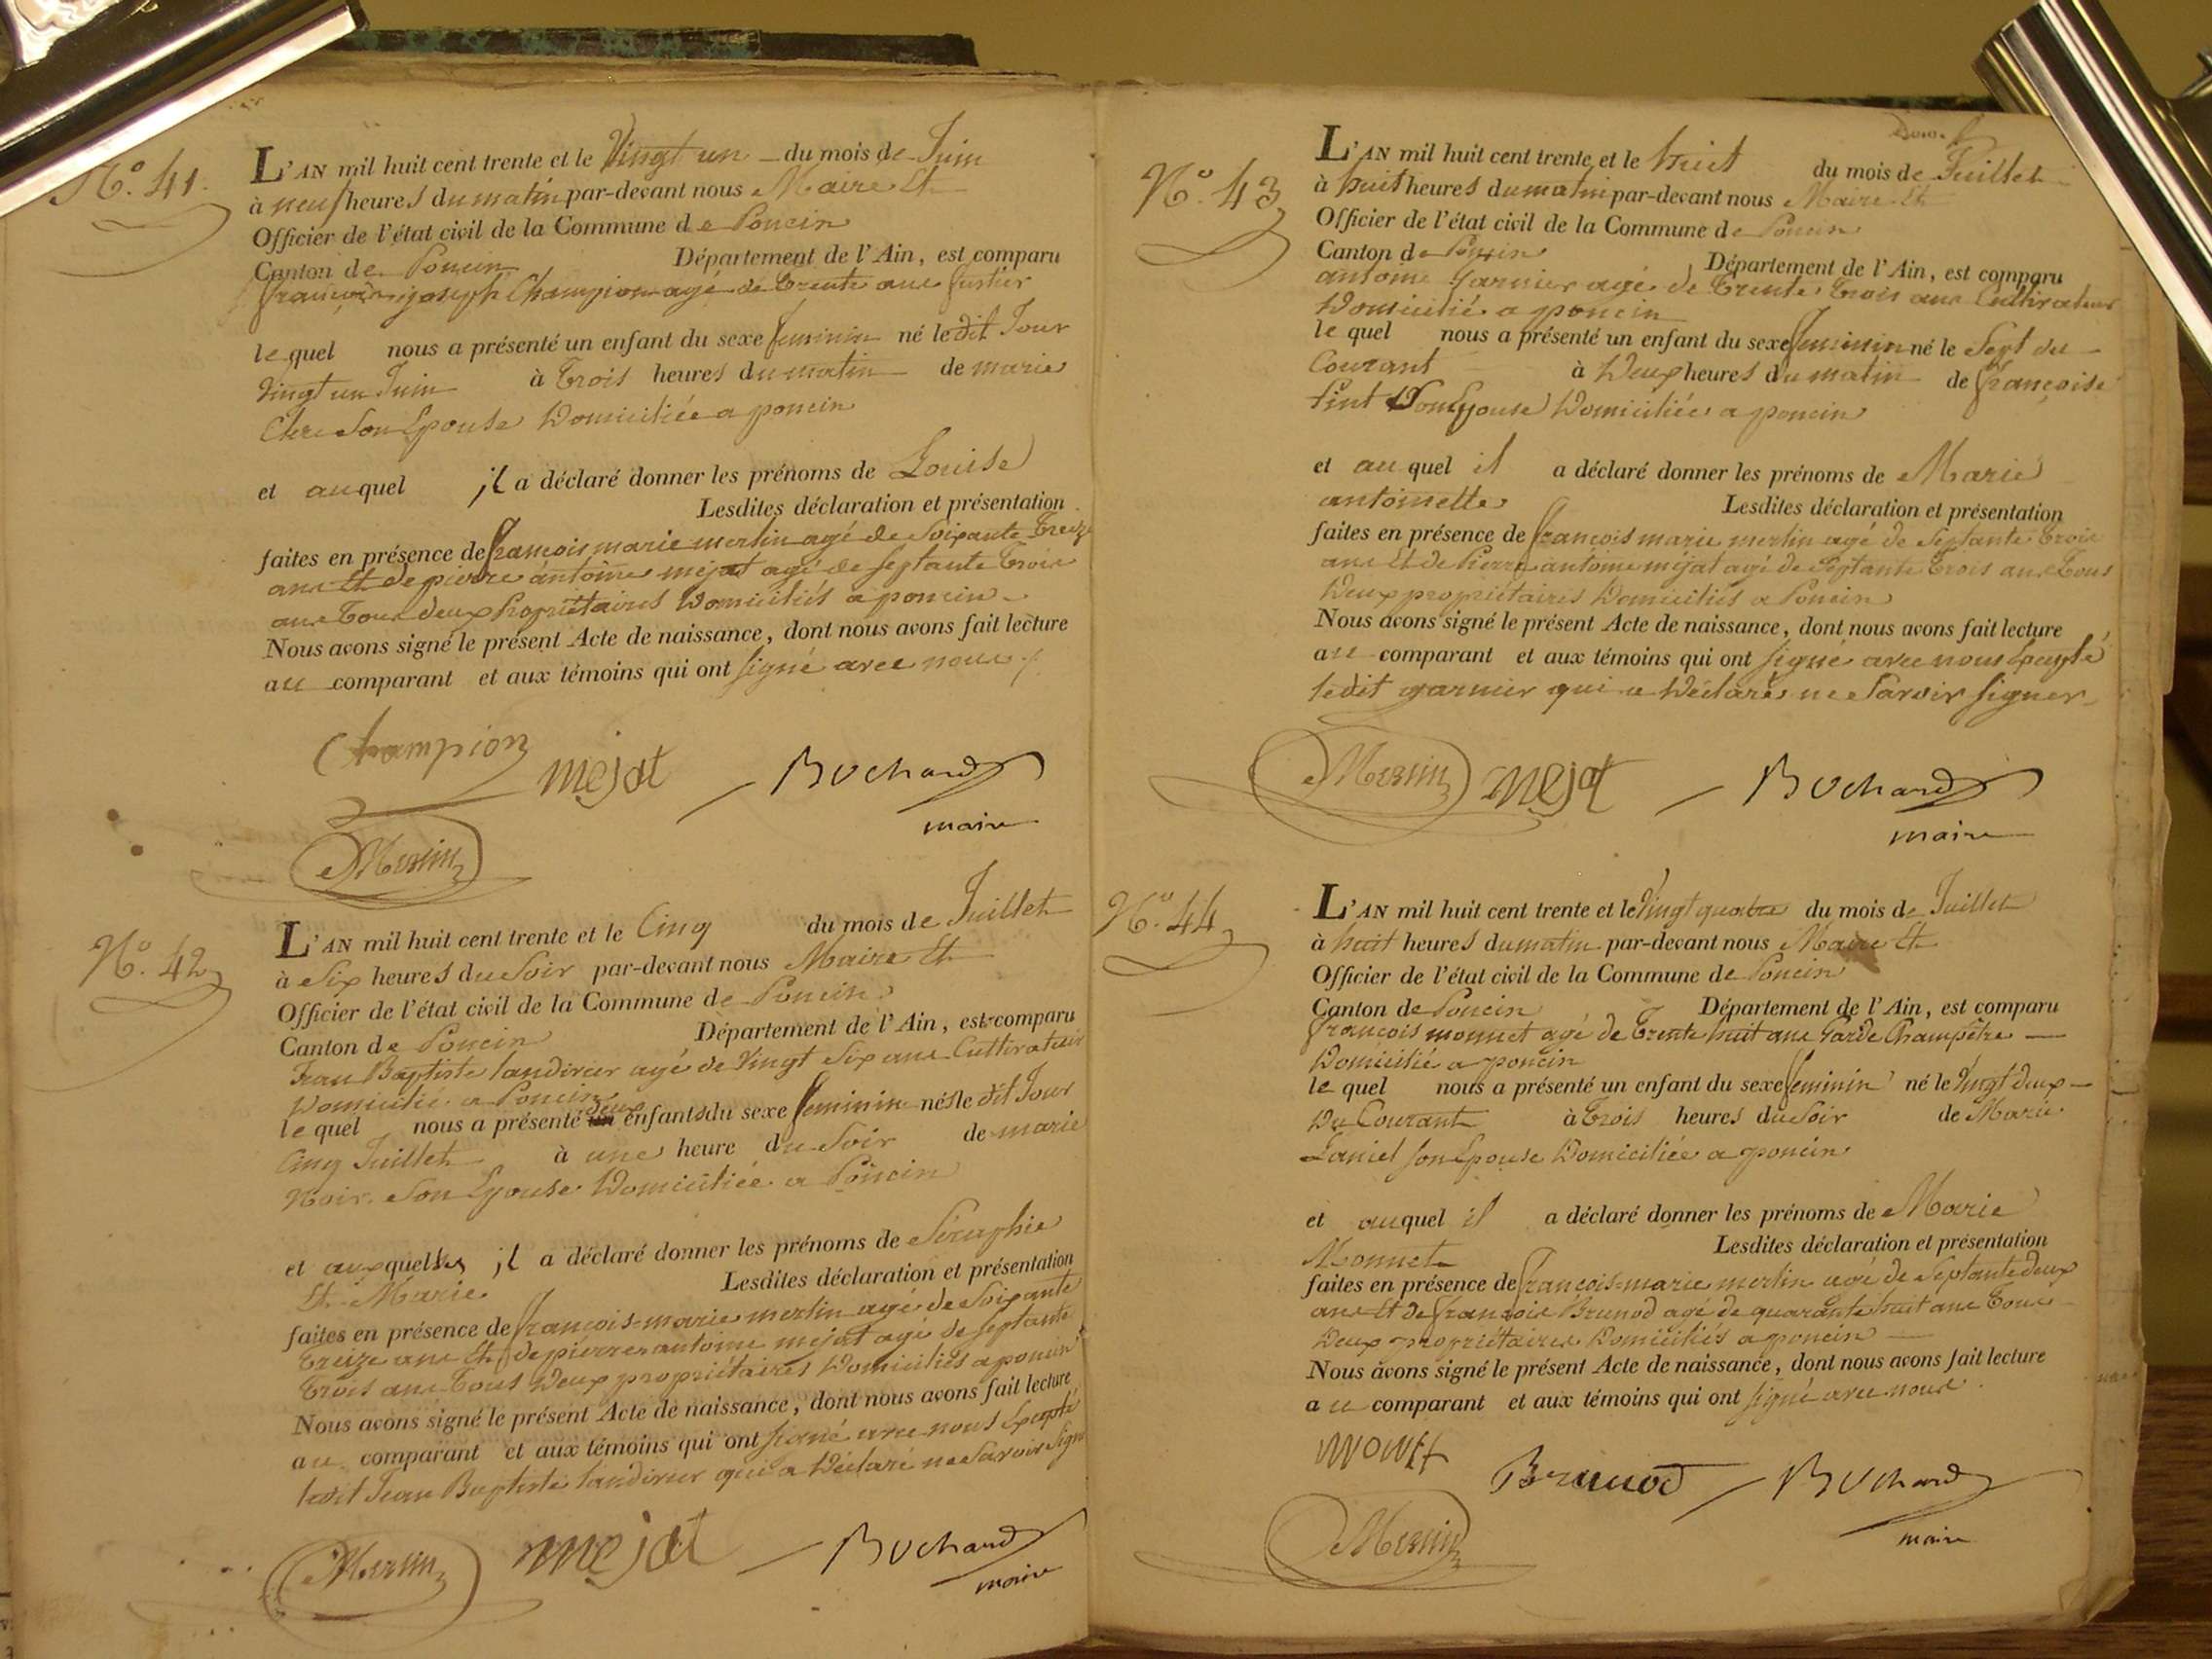 N.º 41.
L'AN mil huit cent trente et le Vingt un du mois de Juin
à neuf heures du matin par-devant nous Maire Et
Officier de l'état civil de la Commune de Poncin
Canton de Poncin Département de l'Ain, est comparu
françois joseph Champion agé de trente ans fustier
le quel nous a présenté un enfant du sexe feminin né le dit Jour
Vingt un Juin à trois heures du matin de marie
son Epouse Domiciliée a poncin
et au quel il a déclaré donner les prénoms de Louise
Lesdites déclaration et présentation
faites en présence de françois marie merlin agé de Soixante treize
ans Et de pierre antoine mejat agé de septante trois
ans tous deux Propriétaires Domiciliés a poncin
Nous avons signé le présent Acte de naissance, dont nous avons fait lecture
au comparant et aux témoins qui ont signé avec nous
Champion
mejat
Bochard
maire
Merlin
N.º 42
L'AN mil huit cent trente et le Cinq du mois de Juillet
à Six heures du Soir par-devant nous Maire Et
Officier de l'état civil de la Commune de Poncin
Canton de Poncin Département de l'Ain, est comparu
Jean Baptiste tandirier agé de Vingt Six ans Cultivateur
Domicilié a Poncin
le quel nous a présenté deux enfants du sexe feminin nés le dit Jour
Cinq Juillet à une heure du Soir de marie
Noir Son Epouse Domiciliée a Poncin
et auxquelles il a déclaré donner les prénoms de Séraphie
Et Marie Lesdites déclaration et présentation
faites en présence de françois-marie merlin agé de Soixante
treize ans Et de pierre antoine mejat agé de septante
trois ans tous Deux propriétaires Domiciliés a poncin
Nous avons signé le présent Acte de naissance, dont nous avons fait lecture
au comparant et aux témoins qui ont signé avec nous Excepté
ledit Jean Baptiste tandirier qui a Déclaré ne Savoir Sign
Merlin
mejat
Bochard
maire
N.º 43
L'AN mil huit cent trente et le huit du mois de Juillet
à huit heures du matin par-devant nous Maire Et
Officier de l'état civil de la Commune de Poncin
Canton de Poncin Département de l'Ain, est comparu
antoine Garnier agé de trente trois ans Cultivateur
Domicilié a poncin
le quel nous a présenté un enfant du sexe feminin né le Sept du
Courant à Deux heures du matin de françoise
tint Son Epouse Domiciliée a poncin
et au quel il a déclaré donner les prénoms de Marie
antoinette Lesdites déclaration et présentation
faites en présence de françois marie merlin agé de Septante trois
ans Et de Pierre antoine mejat agé de Septante trois ans tous
Deux propriétaires Domiciliés a Poncin
Nous avons signé le présent Acte de naissance, dont nous avons fait lecture
au comparant et aux témoins qui ont signé avec nous Excepté
ledit garnier qui a Déclaré ne Savoir signer
Merlin
mejat
Bochard
maire
N.º 44
L'AN mil huit cent trente et le Vingt quatre du mois de Juillet
à huit heures du matin par-devant nous Maire Et
Officier de l'état civil de la Commune de Poncin
Canton de Poncin Département de l'Ain, est comparu
françois monnet agé de trente huit ans Garde Champêtre
Domicilié a poncin
le quel nous a présenté un enfant du sexe feminin né le Vingt deux
Du Courant à trois heures du Soir de Marie
Laniel son Epouse Domiciliée a poncin
et au quel il a déclaré donner les prénoms de Marie
Monnet Lesdites déclaration et présentation
faites en présence de françois-marie merlin agé de Septante deux
ans Et de françois Brunod agé de quarante huit ans tous
Deux propriétaires Domiciliés a poncin
Nous avons signé le présent Acte de naissance, dont nous avons fait lecture
au comparant et aux témoins qui ont signé avec nous
Brunod
Bochard
maire
Merlin